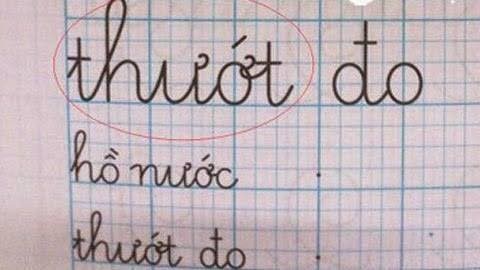 thướt đo
hồ nước
thướt đo